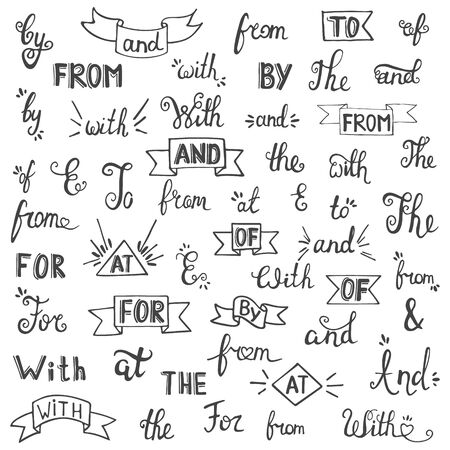 by and from TO of
FROM with BY The and
by with With and FROM
AND the with The
of E To from at E to The
from AT OF and
FOR E With OF from
For FOR By and &
With at from And
THE AT
WiTH the For from With